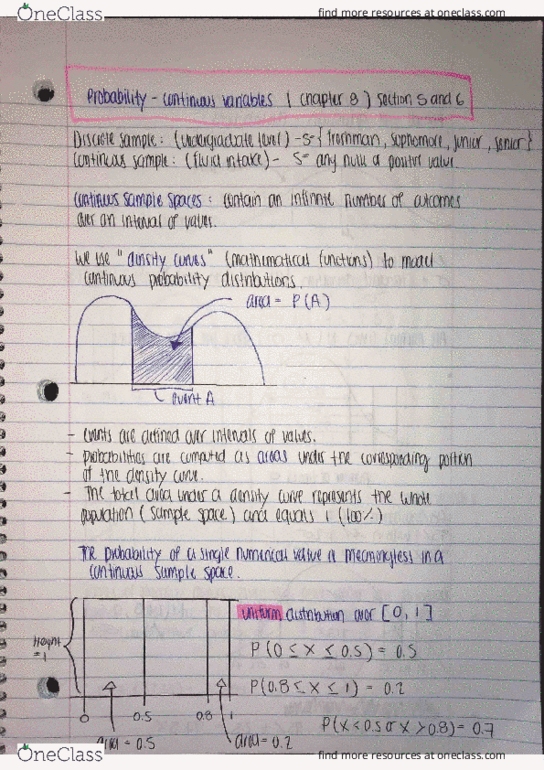 OneClass
find more resources at oneclass.com
Probability - continuous variables ( chapter 8 ) section 5 and 6
Discrete sample : (undergraduate level) - S={ freshman, sophomore, junior, senior}
continuous sample : (fluid intake) - S= any null a positive value.
continuous sample spaces : contain an infinite number of outcomes
over an interval of values.
We use "density curves" (mathematical functions) to model
continuous probability distributions.
area = P(A)
event A
- events are defined over intervals of values.
- probabilities are computed as areas under the corresponding portion
of the density curve.
- The total area under a density curve represents the whole
population (sample space) and equals 1 (100%)
The probability of a single numerical value is meaningless in a
continuous sample space.
uniform distribution over [0,1]
Height
=1
P(0≤X≤0.5) = 0.5
P(0.8≤X≤1) = 0.2
0 0.5 0.8 1
P(X<0.5 or X>0.8) = 0.7
area = 0.5
area = 0.2
OneClass
find more resources at oneclass.com